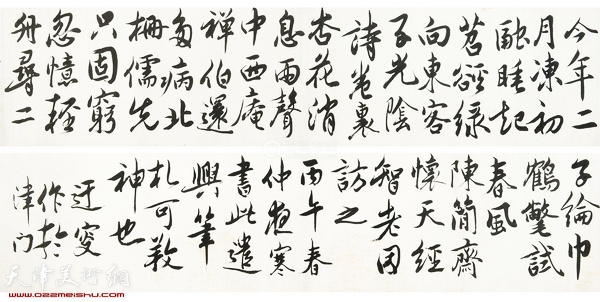 今年二
月凍初
融睡起
苕谿綠
向東客
子光陰
詩卷裏
杏花消
息雨聲
中西庵
禅伯還
多病北
柵儒先
只固窮
忽憶輕
舟尋二
子綸巾
鶴氅試
春風
陳簡齋
懷天經
智老因
訪之
丙午春
仲夜寒
書此遣
興筆
札可教
神也
迂叟
作於
津門
天津美术网
www.022meishu.com